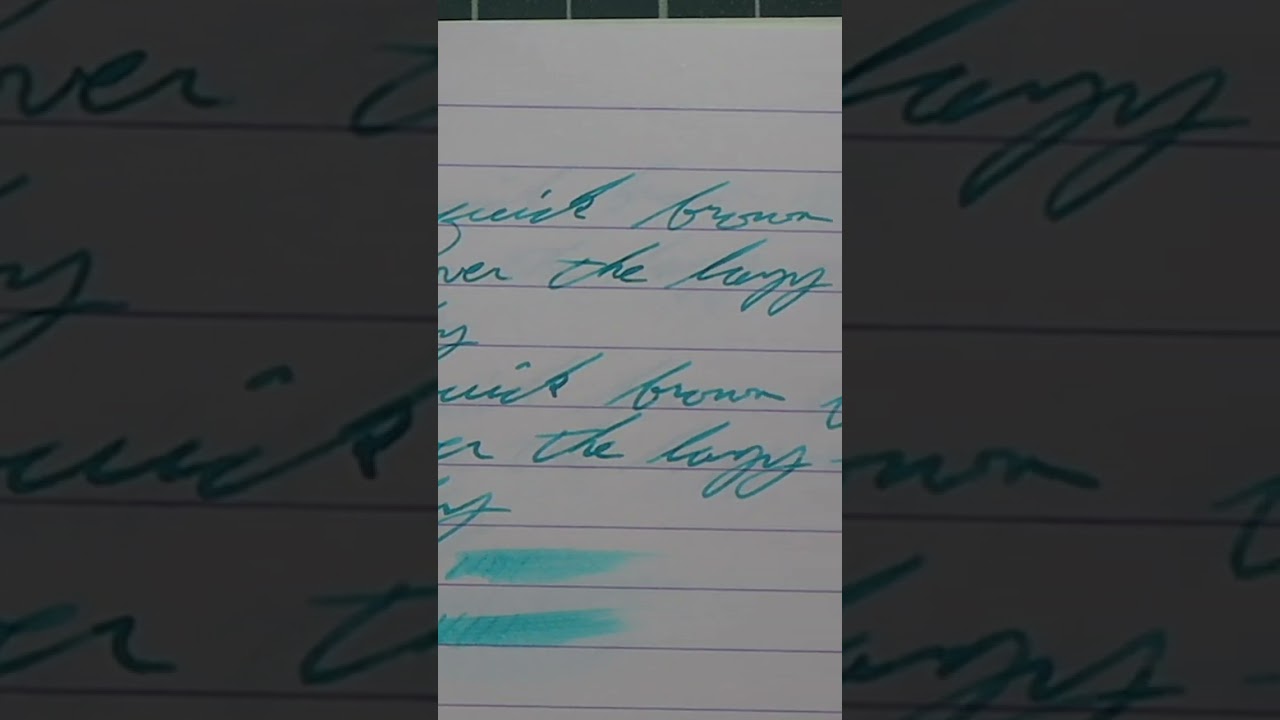 quick brown
ver the lazy
uick brown
er the lazy